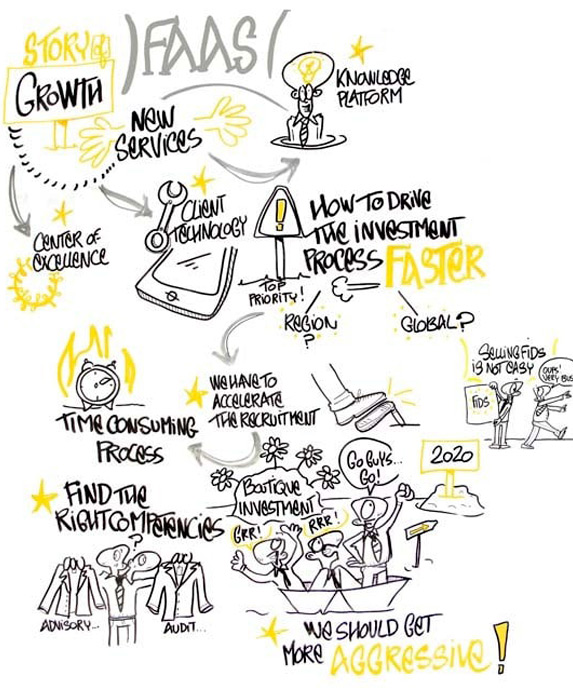 STORY of
GROWTH
)FAAS(
KNOWLEDGE
PLATFORM
NEW
SERVICES
CENTER OF
EXCELLENCE
CLIENT
TECHNOLOGY
TOP
PRIORITY!
HOW TO DRIVE
THE INVESTMENT
PROCESS FASTER
REGION
?
GLOBAL?
SELLING FIDS
IS NOT EASY
FIDS
OUPS!
VERY BUSY
TIME CONSUMING
PROCESS
WE HAVE TO
ACCELERATE
THE RECRUITMENT
FIND THE
RIGHT COMPETENCIES
?
ADVISORY...
AUDIT...
BOUTIQUE
INVESTMENT
GRR!
RRR!
GO GUYS...
GO!
2020
WE SHOULD GET
MORE AGGRESSIVE!